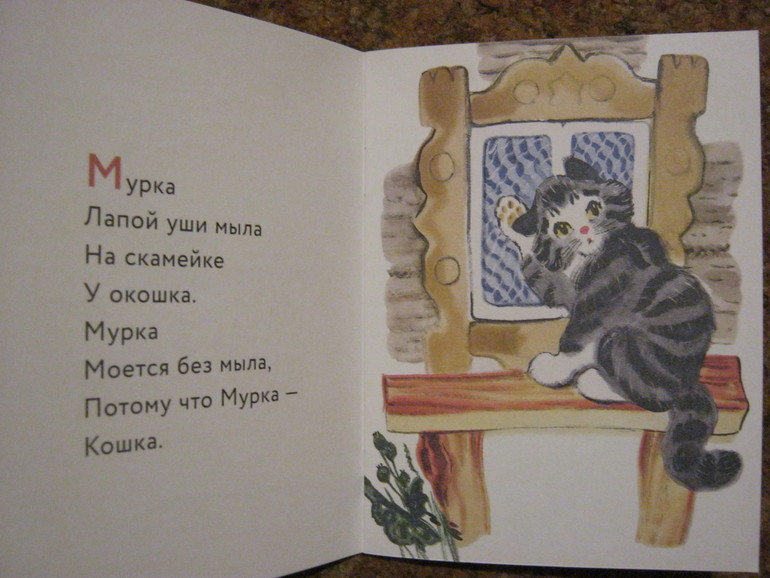 Мурка
Лапой уши мыла
На скамейке
У окошка.
Мурка
Моется без мыла,
Потому что Мурка –
Кошка.